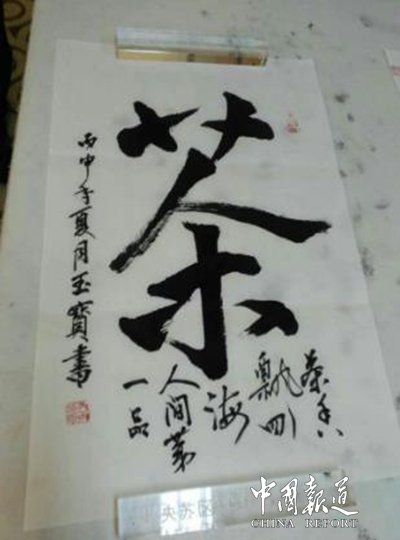 茶
茶香
飄四
海
人間第
一品
丙申年夏月玉寶書
中國報道
CHINA REPORT